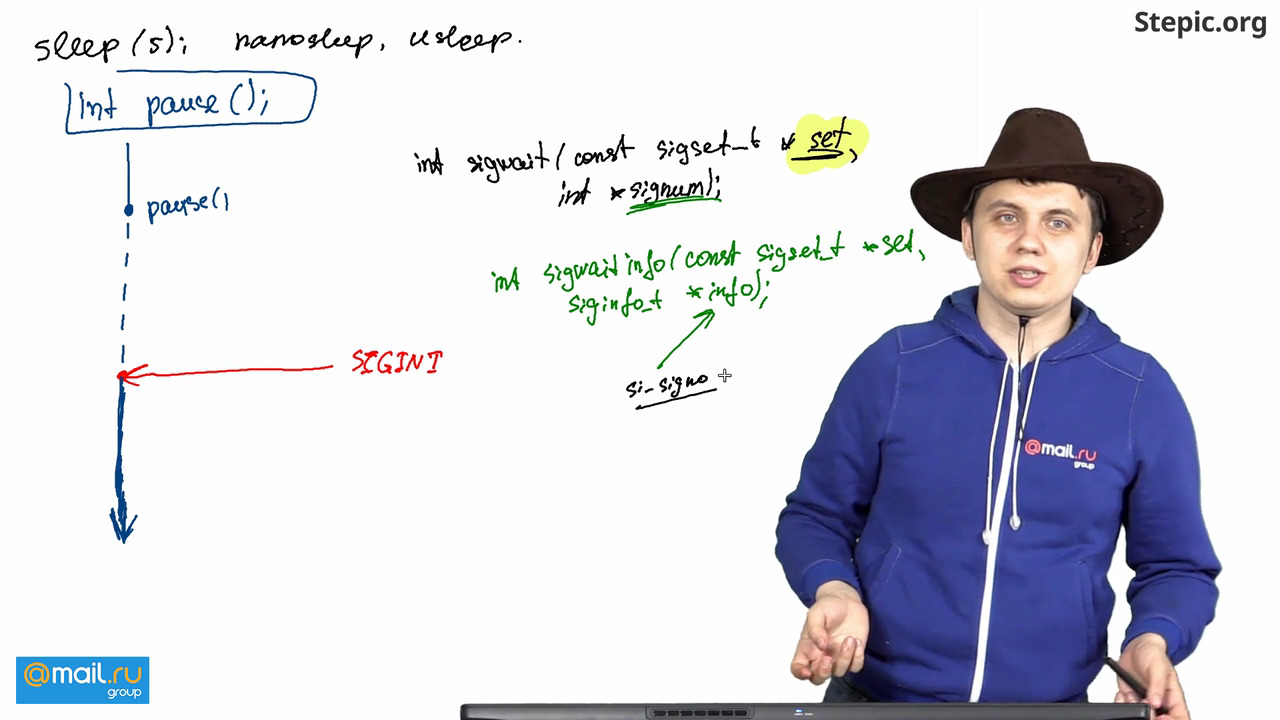 Stepic.org
sleep(s); nanosleep, usleep.
int pause();
int sigwait(const sigset_t * set,
int *signum);
pause()
int sigwaitinfo(const sigset_t *set,
siginfo_t *info);
SIGINT
si_signo
@mail.ru
group
@mail.ru
group